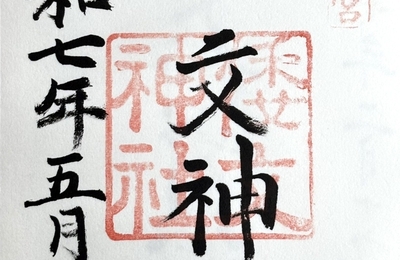 宮
文神
神社
和七年五月